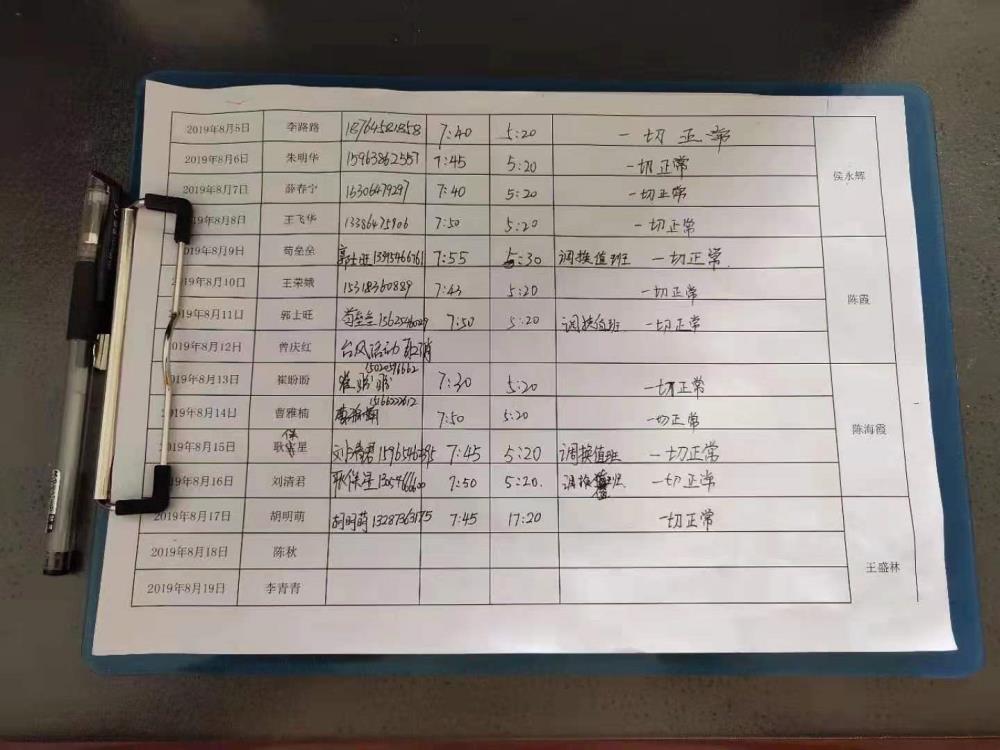 2019年8月5日 李路路 18764581858 7:40 5:20 一切正常 侯永辉
2019年8月6日 朱明华 15963862557 7:45 5:20 一切正常
2019年8月7日 薛春宁 16306479297 7:40 5:20 一切正常
2019年8月8日 王飞华 13386475906 7:50 5:20 一切正常
2019年8月9日 荀垒垒 郭士旺 13915466761 7:55 5:30 调换值班 一切正常 陈霞
2019年8月10日 王荣娥 15318360889 7:43 5:20 一切正常
2019年8月11日 郭士旺 荀垒垒 7:50 5:20 调换值班 一切正常
2019年8月12日 曾庆红 台风活动取消
2019年8月13日 崔盼盼 崔盼盼 15020596662 7:30 5:20 一切正常 陈海霞
2019年8月14日 曹雅楠 曹雅楠 7:50 5:20 一切正常
2019年8月15日 耿保星 刘清君 7:45 5:20 调换值班 一切正常
2019年8月16日 刘清君 耿保星 7:50 5:20. 调换值班 一切正常
2019年8月17日 胡明萌 胡明萌 13287363175 7:45 17:20 一切正常 王盛林
2019年8月18日 陈秋
2019年8月19日 李青青